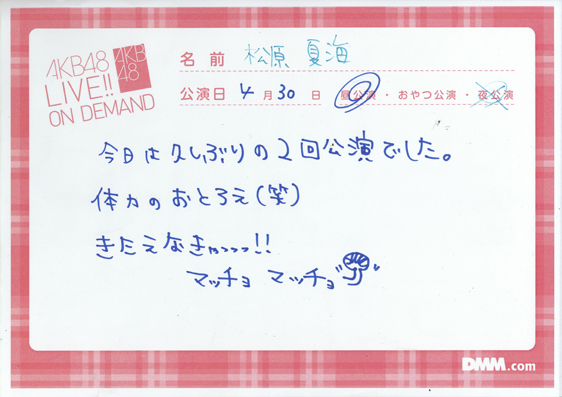 AKB48
LIVE!!
ON DEMAND
AKB
48
名前 松原 夏海
公演日 4月30日 昼公演・おやつ公演・夜公演
今日は久しぶりの2回公演でした。
体力のおとろえ(笑)
きたえなきゃっっっ!!
マッチョ マッチョ
DMM.com